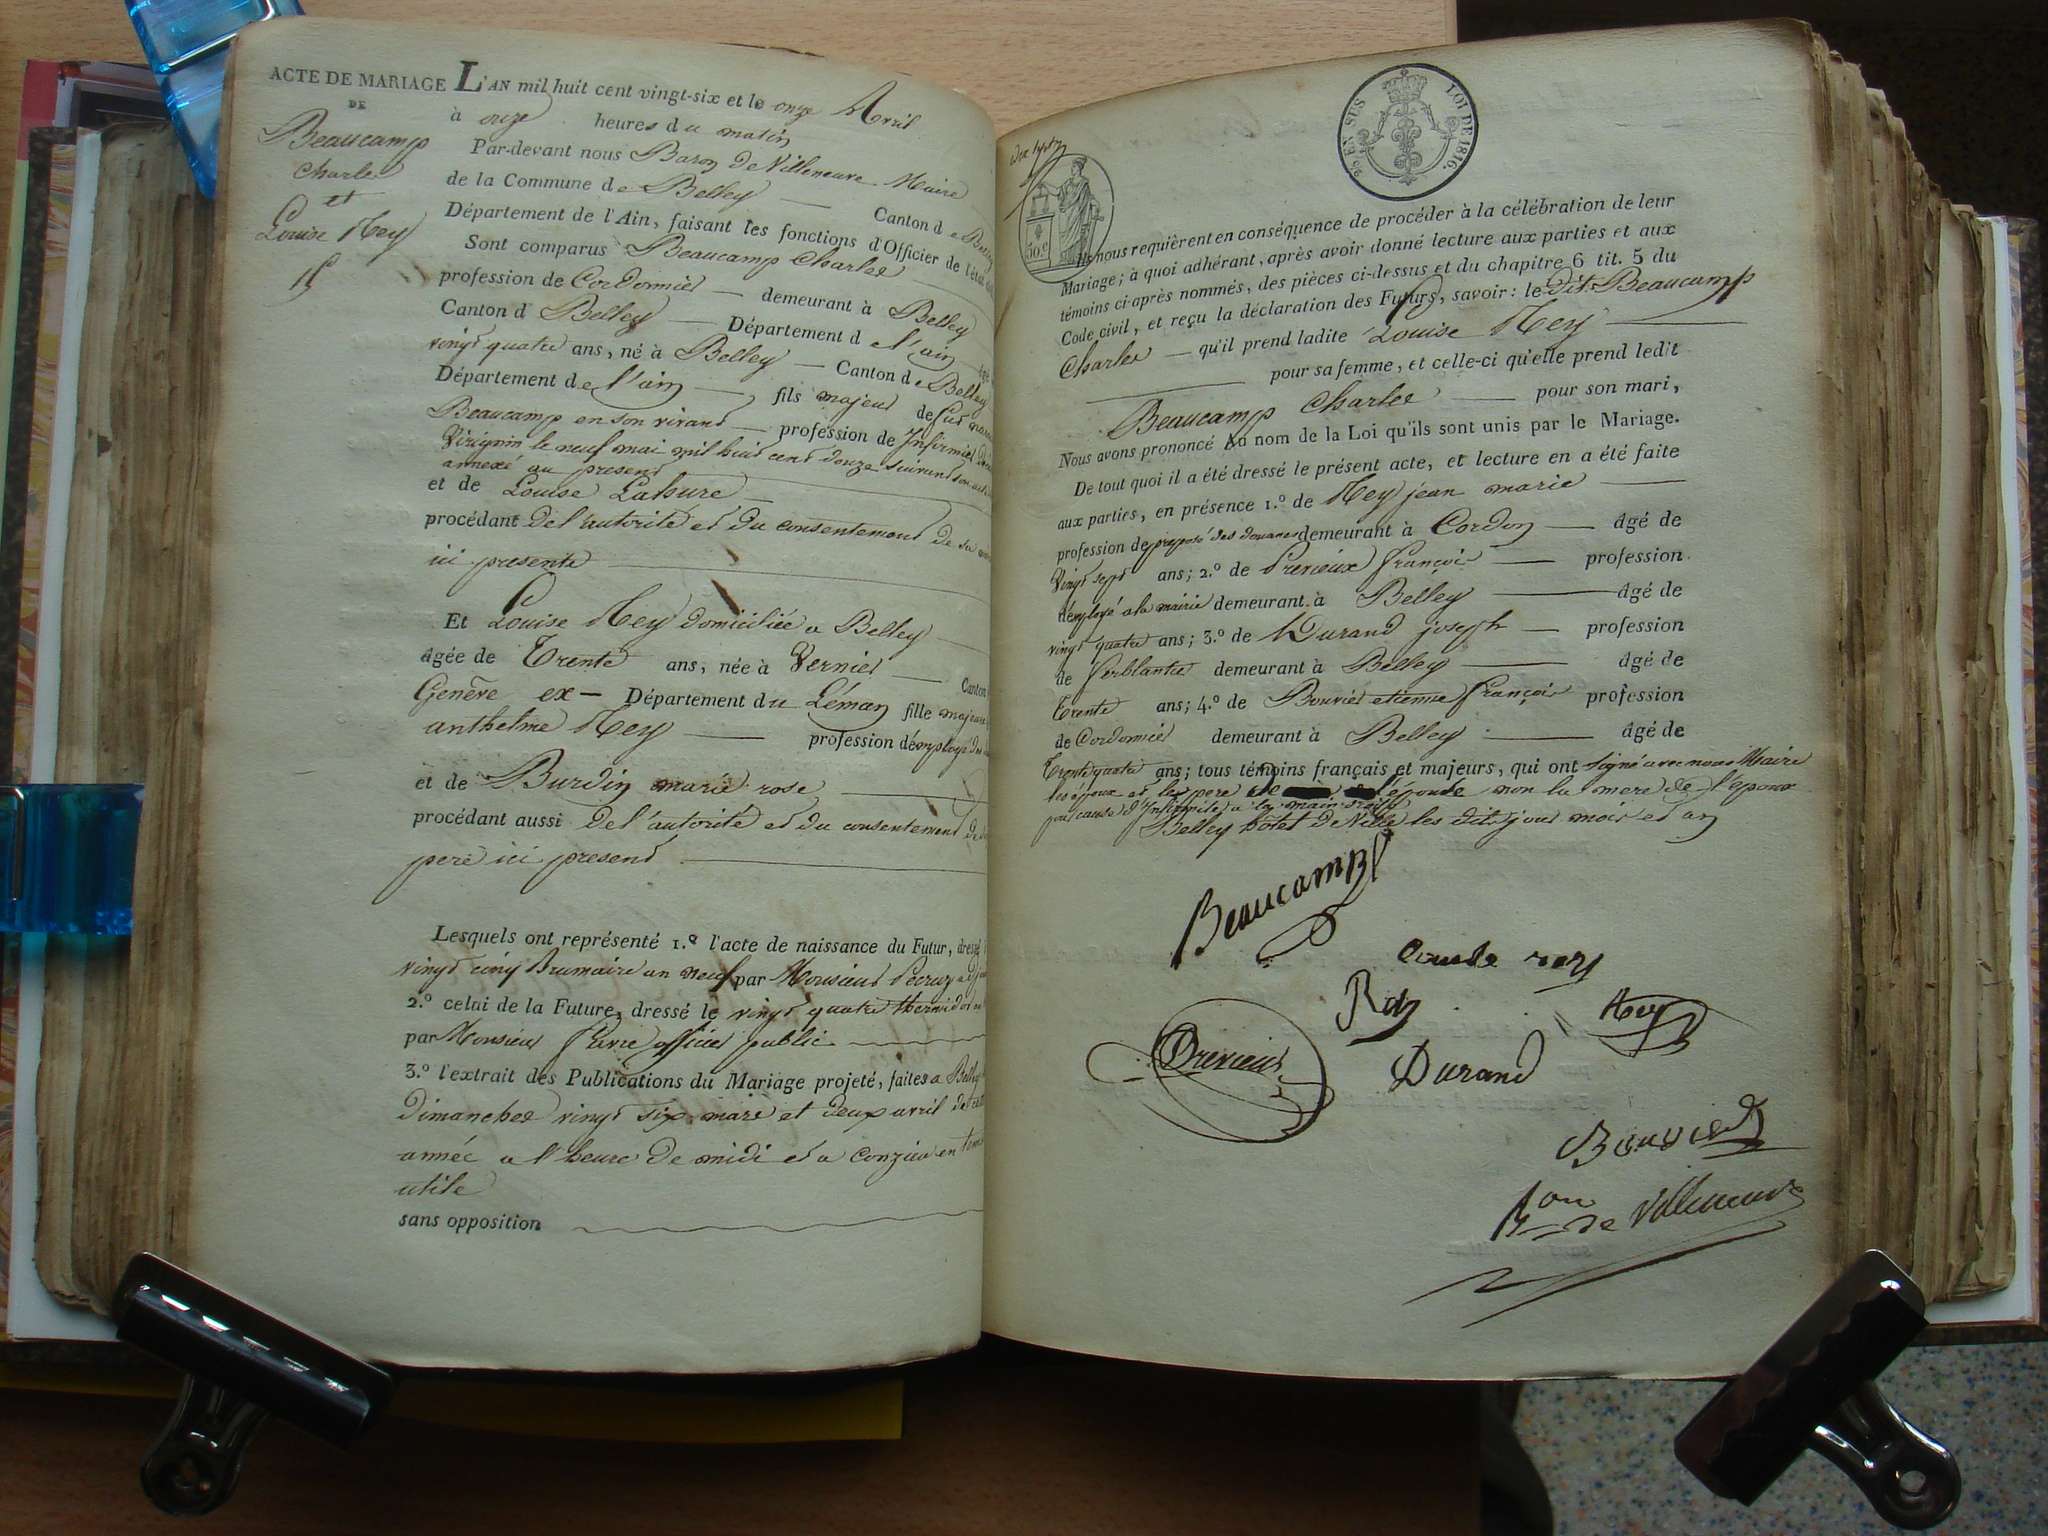 ACTE DE MARIAGE
DE
Beaucamp
Charles
et
Louise Rey
15
L'AN mil huit cent vingt-six et le onze Avril
à onze heures du matin
Par-devant nous Baron de Villeneuve Maire
de la Commune de Belley — Canton de
Département de l'Ain, faisant les fonctions d'Officier de l'état
Sont comparus Beaucamp Charles
profession de Cordonnier — demeurant à Belley
Canton d Belley — Département d l'ain
vingt quatre ans, né à Belley — Canton de Belley
Département de l'ain — fils majeur de feu
Beaucamp en son vivant — profession de Infirmier
Virignin le neuf mai mil huit cent douze suivant son
annexé au present
et de Louise Lahure —
procédant de l'autorité et du consentement de sa
ici presente
Et Louise Rey domiciliée a Belley
âgée de Trente ans, née à Vernier — Canton
Genève ex — Département du Léman fille majeure
anthelme Rey — profession d'employé des
et de Burdin marie rose
procédant aussi de l'autorité et du consentement de
pere ici present
Lesquels ont représenté 1.º l'acte de naissance du Futur, dressé
vingt cinq Brumaire an neuf par Monsieur
2.º celui de la Future, dressé le vingt quatre thermidor
par Monsieur officier public
3.º l'extrait des Publications du Mariage projeté, faites a Belley
Dimanches vingt six mars et deux avril de cette
année a l'heure de midi et a Conzieu en tems
utile
sans opposition
2.e EN SUS LOI DE 1816.
50.c
Ils nous requièrent en conséquence de procéder à la célébration de leur
Mariage; à quoi adhérant, après avoir donné lecture aux parties et aux
témoins ci-après nommés, des pièces ci-dessus et du chapitre 6 tit. 5 du
Code civil, et reçu la déclaration des Futurs, savoir: le dit Beaucamp
Charles — qu'il prend ladite Louise Rey —
— pour sa femme, et celle-ci qu'elle prend ledit
Beaucamp Charles — pour son mari,
Nous avons prononcé au nom de la Loi qu'ils sont unis par le Mariage.
De tout quoi il a été dressé le présent acte, et lecture en a été faite
aux parties, en présence 1.º de Rey jean marie —
profession de préposé des douanes demeurant à Cordon — âgé de
Vingt sept ans; 2.º de Prerieux françois — profession
d'employé a la mairie demeurant à Belley — âgé de
vingt quatre ans; 3.º de Durand joseph — profession
de ferblantier demeurant à Belley — âgé de
Trente ans; 4.º de Bouvier etienne françois profession
de Cordonnier demeurant à Belley — âgé de
Trente quatre ans; tous témoins français et majeurs, qui ont signé avec nous Maire
les époux et le pere de l'épouse non la mere de l'epoux
pour cause d'Infirmité a la main droite
Belley hôtel de Ville les dits jour mois et an
Beaucamp
Rey
Rey
Prerieux
Durand
Bouvier
B.on de Villeneuve